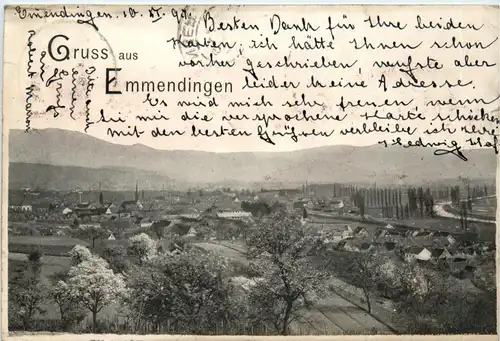 Emmendingen, 10. VI. 99.
Besten Dank für Ihre beiden
Karten, ich hätte Ihnen schon
vorher geschrieben, wusste aber
leider keine Adresse.
Gruss aus
Emmendingen
Es wird mich sehr freuen, wenn
mir die versprochene Karte schicken
mit den besten Grüssen verbleibe ich Ihre
Hedwig